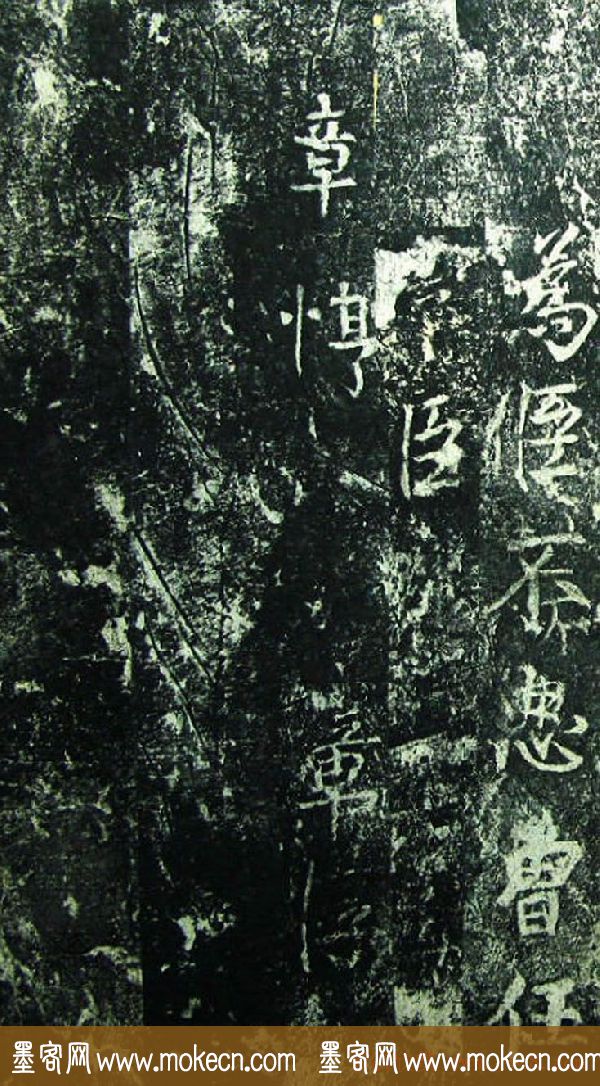 為臣不忠曾任
宰臣
章惇 章惇
墨客网 www.mokecn.com 墨客网 www.mokecn.com